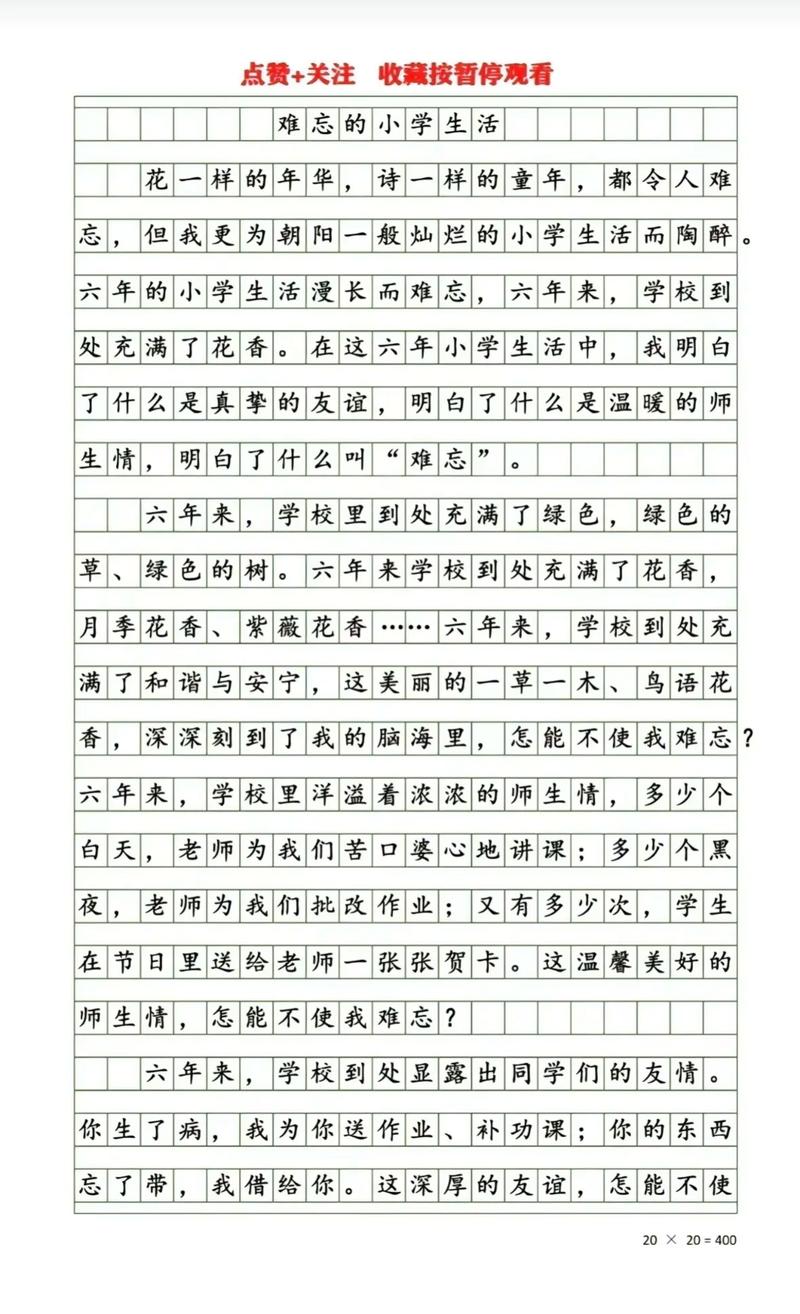 点赞+关注 收藏按暂停观看
难忘的小学生活
花一样的年华，诗一样的童年，都令人难
忘，但我更为朝阳一般灿烂的小学生活而陶醉。
六年的小学生活漫长而难忘，六年来，学校到
处充满了花香。在这六年小学生活中，我明白
了什么是真挚的友谊，明白了什么是温暖的师
生情，明白了什么叫“难忘”。
六年来，学校里到处充满了绿色，绿色的
草、绿色的树。六年来学校到处充满了花香，
月季花香、紫薇花香……六年来，学校到处充
满了和谐与安宁，这美丽的一草一木、鸟语花
香，深深刻到了我的脑海里，怎能不使我难忘？
六年来，学校里洋溢着浓浓的师生情，多少个
白天，老师为我们苦口婆心地讲课；多少个黑
夜，老师为我们批改作业；又有多少次，学生
在节日里送给老师一张张贺卡。这温馨美好的
师生情，怎能不使我难忘？
六年来，学校到处显露出同学们的友情。
你生了病，我为你送作业、补功课；你的东西
忘了带，我借给你。这深厚的友谊，怎能不使
20 × 20 = 400